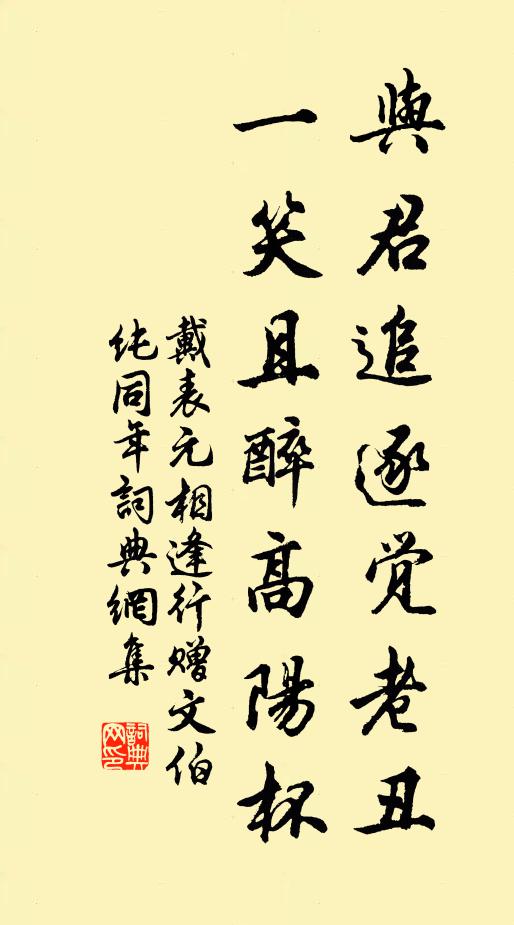 與君追逐覺老丑
一笑且醉高陽杯
戴表元相逢行贈文伯
純同年詞典網集
詞典
网印